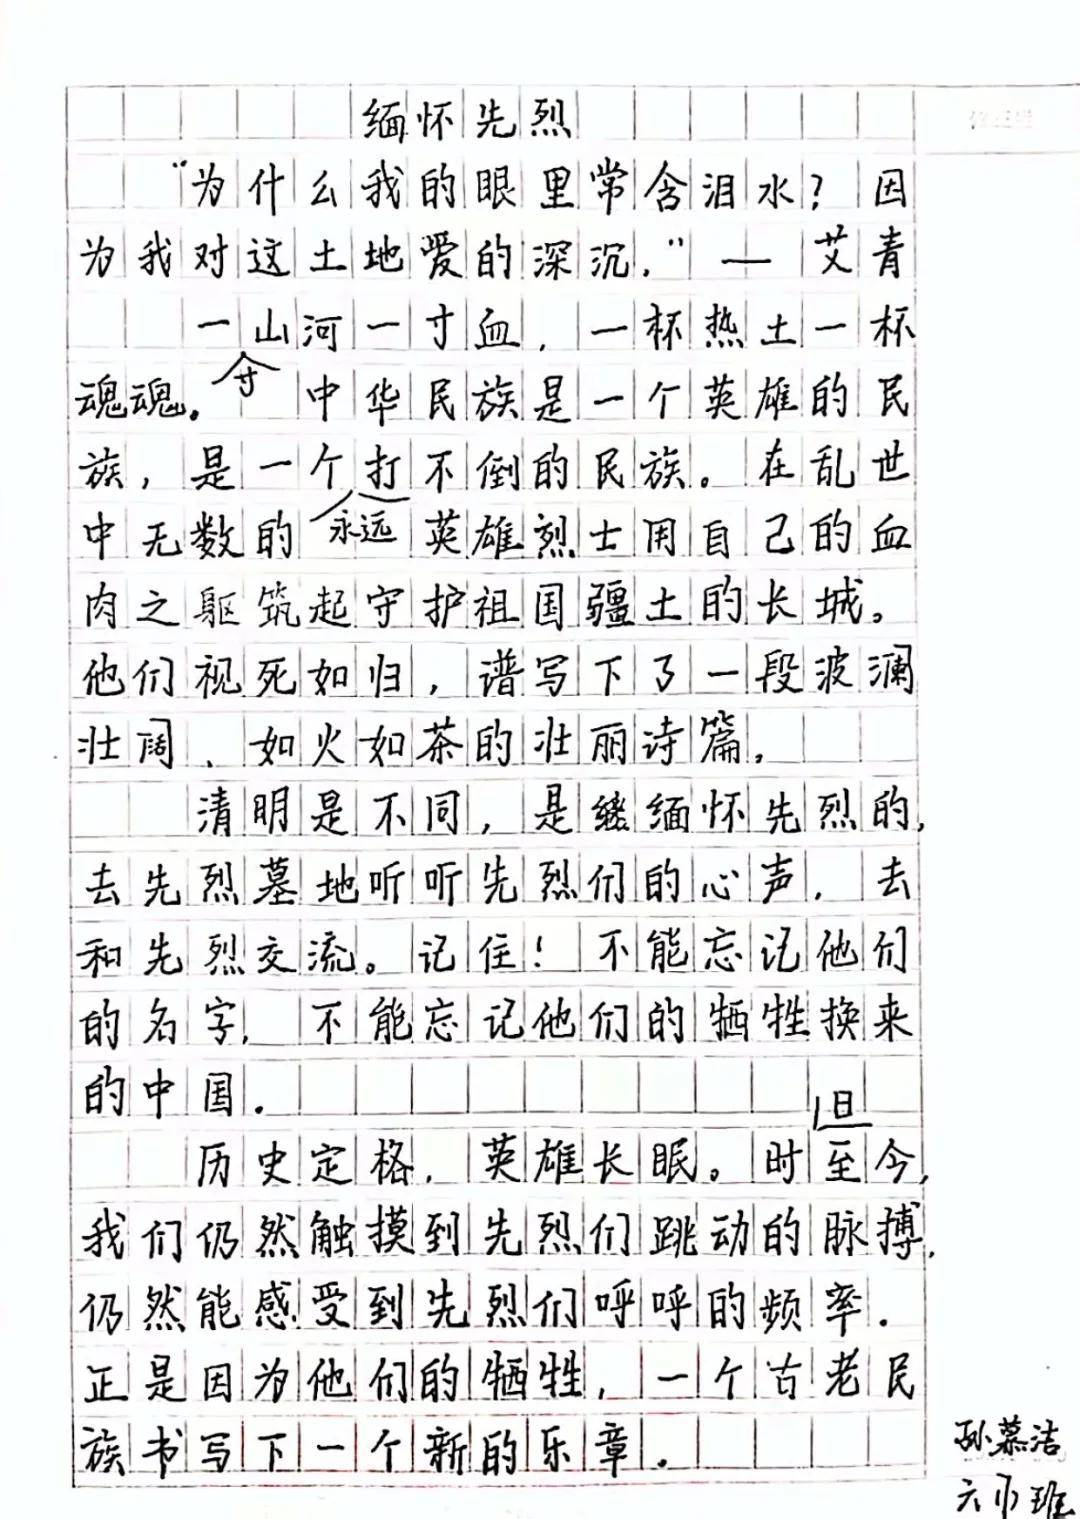 缅怀先烈
“为什么我的眼里常含泪水？因
为我对这土地爱的深沉.”—艾青
一寸山河一寸血，一杯热土一杯
魂魂。中华民族是一个英雄的民
族，是一个永远打不倒的民族。在乱世
中无数的英雄烈士用自己的血
肉之躯筑起守护祖国疆土的长城。
他们视死如归，谱写下了一段波澜
壮阔、如火如茶的壮丽诗篇.
清明是不同，是缅怀先烈的，
去先烈墓地听听先烈们的心声，去
和先烈交流。记住！不能忘记他们
的名字，不能忘记他们的牺牲换来
的中国.
历史定格，英雄长眠。时至今但，
我们仍然触摸到先烈们跳动的脉搏，
仍然能感受到先烈们呼呼的频率.
正是因为他们的牺牲，一个古老民
族书写下一个新的乐章.
孙慕洁
班